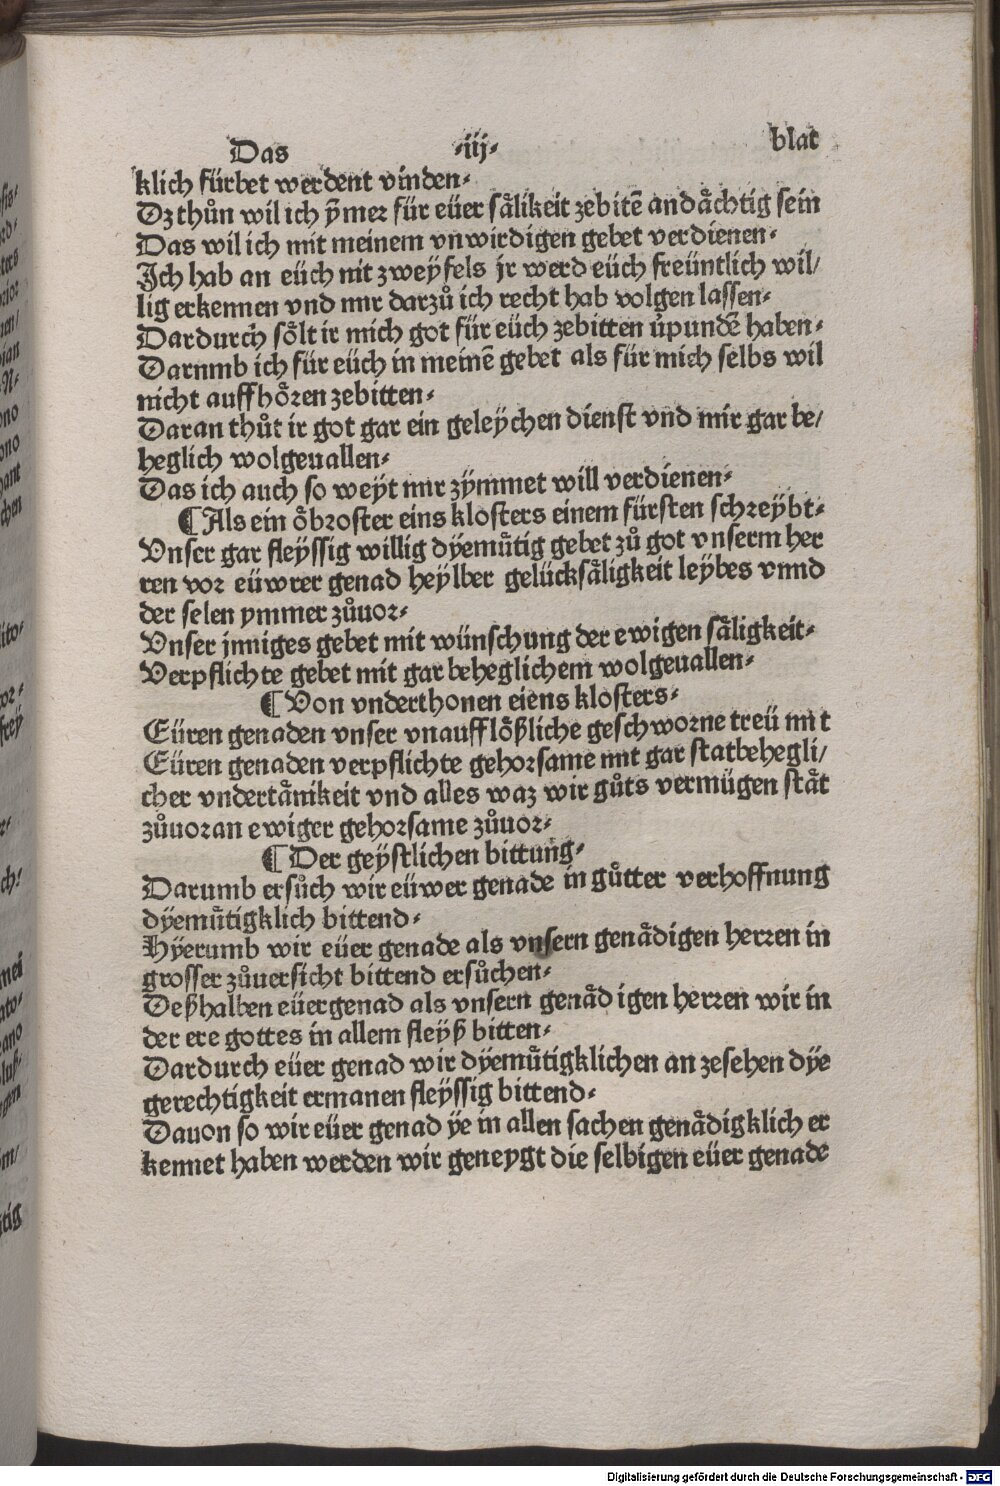 Das ·iij· blat
klich fürbet werdent vinden·
Dz thůn wil ich ÿ̄mer für eüer sålikeit zebitē andåchtig sein
Das wil ich mit meinem vnwirdigen gebet verdienen·
Ich hab an eüch nit zweÿfels jr werd eüch freüntlich wil/
lig erkennen vnd mir darzů ich recht hab volgen lassen·
Dardurch so̊lt ir mich got für eüch zebitten ůpundē haben·
Darumb ich für eüch in meinē gebet als für mich selbs wil
nicht auffho̊ren zebitten·
Daran thůt ir got gar ein geleÿchen dienst vnd mir gar be/
heglich wolgeuallen·
Das ich auch so weÿt mir zÿmmet will verdienen·
¶ Als ein o̊broster eins klosters einem fürsten schreÿbt·
Vnser gar fleÿssig willig dÿemůtig gebet zů got vnserm her
ren vor eüwrer genad heÿlber gelücksåligkeit leÿbes vnnd
der selen ymmer zůuor·
Vnser jnniges gebet mit wünschung der ewigen såligkeit·
Verpflichte gebet mit gar beheglichem wolgeuallen·
¶ Von vnderthonen eiens klosters·
Eüren genaden vnser vnaufflo̊ßliche geschworne treü mit
Eüren genaden verpflichte gehorsame mit gar statbehegli/
cher vndertånikeit vnd alles waz wir gůts vermügen ståt
zůuoran ewiger gehorsame zůuor·
¶ Der geÿstlichen bittung·
Darumb ersůch wir eüwer genade in gůtter verhoffnung
dÿemůtigklich bittend·
Hÿerumb wir eüer genade als vnsern genådigen herren in
grosser zůuersicht bittend ersůchen·
Deßhalben eüergenad als vnsern genåd igen herren wir in
der ere gottes in allem fleÿß bitten·
Dardurch eüer genad wir dÿemůtigklichen an zesehen dÿe
gerechtigkeit ermanen fleÿssig bittend·
Dauon so wir eüer genad ÿe in allen sachen genådigklich er
kennet haben werden wir geneygt die selbigen eüer genade
Digitalisierung gefördert durch die Deutsche Forschungsgemeinschaft - DFG